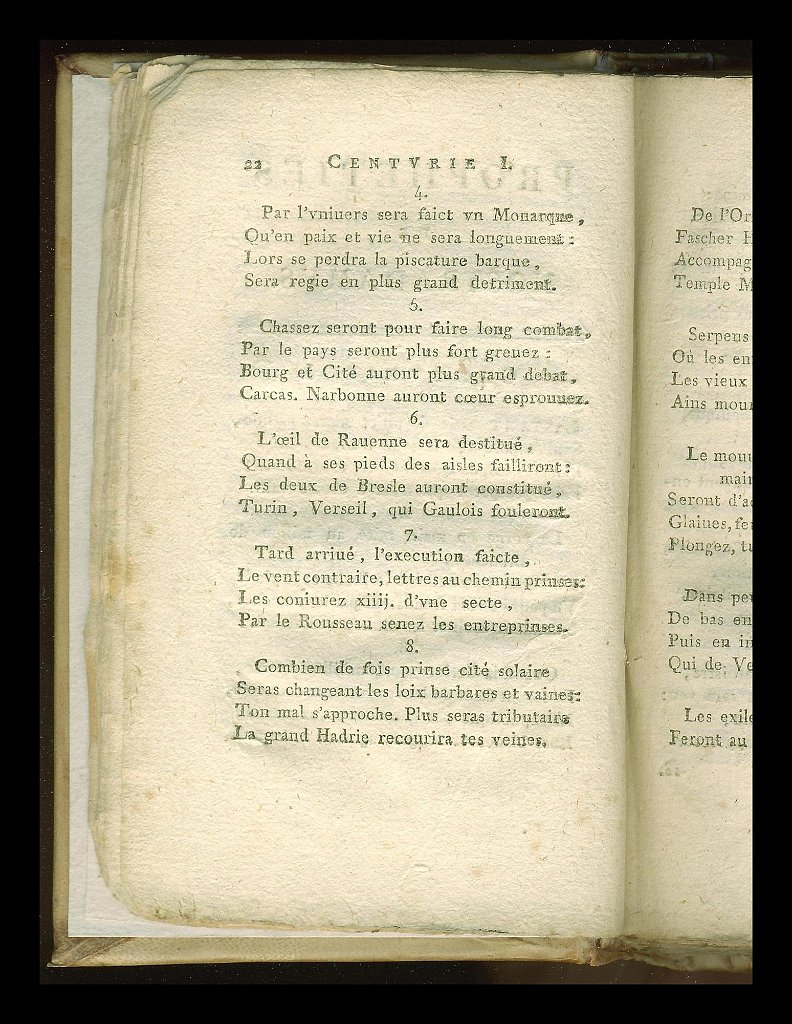 22 CENTVRIE I.
4.
Par l'vniuers sera faict vn Monarque,
Qu'en paix et vie ne sera longuement :
Lors se perdra la piscature barque,
Sera regie en plus grand detriment.
5.
Chassez seront pour faire long combat,
Par le pays seront plus fort greuez :
Bourg et Cité auront plus grand debat,
Carcas. Narbonne auront cœur esprouuez.
6.
L'œil de Rauenne sera destitué,
Quand à ses pieds des aisles failliront :
Les deux de Bresle auront constitué,
Turin, Verseil, qui Gaulois fouleront.
7.
Tard arriué, l'execution faicte,
Le vent contraire, lettres au chemin prinses:
Les coniurez xiiij. d'vne secte,
Par le Rousseau senez les entreprinses.
8.
Combien de fois prinse cité solaire
Seras changeant les loix barbares et vaines:
Ton mal s'approche. Plus seras tributaire
La grand Hadrie recourira tes veines.
De l'Or
Fascher
Accompag
Temple M
Serpens
Où les en
Les vieux
Ains mou
Le mou
main
Seront d'a
Glaiues, fe
Plongez, t
Dans pe
De bas en
Puis en i
Qui de Ve
Les exile
Feront au